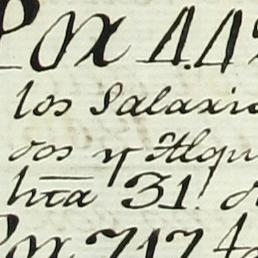 Por 4.4
los Salario
dos y Alqui
hta 31. d
Por 717